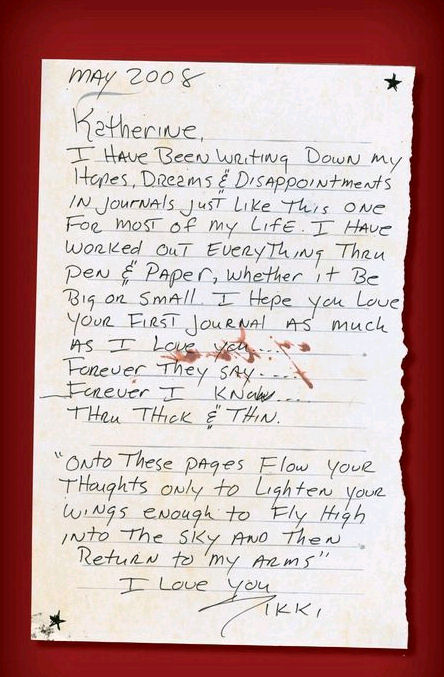 MAY 2008
Katherine,
I HAVE BEEN WRITING DOWN MY
HOPES, DREAMS & DISAPPOINTMENTS
IN JOURNALS JUST LIKE THIS ONE
FOR MOST OF MY LIFE. I HAVE
WORKED OUT EVERYTHING THRU
PEN & PAPER, WHETHER IT BE
BIG OR SMALL. I HOPE YOU LOVE
YOUR FIRST JOURNAL AS MUCH
AS I LOVE YOU....
FOREVER THEY SAY.....
FOREVER I KNOW....
THRU THICK & THIN.
"ONTO THESE PAGES FLOW YOUR
THOUGHTS ONLY TO LIGHTEN YOUR
WINGS ENOUGH TO FLY HIGH
INTO THE SKY AND THEN
RETURN TO MY ARMS"
I LOVE YOU
NIKKI